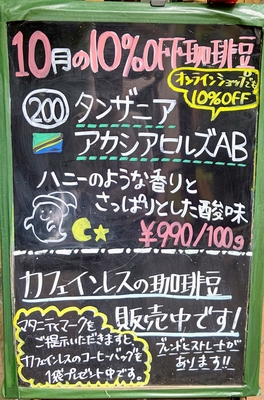 10月の10%OFF珈琲豆
オンラインショップでも
10%OFF
200 タンザニア
アカシアヒルズAB
ハニーのような香りと
さっぱりとした酸味
¥990/100g
カフェインレスの珈琲豆
販売中です!
マタニティマークを
ご提示いただきますと
カフェインレスのコーヒーバッグを
1袋プレゼント中です。
ブレンドとストレートが
あります!!